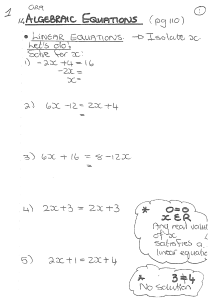 1
①
ALGEBRAIC EQUATIONS (pg 110)
• LINEAR EQUATIONS → Isolate x
Let's do!
Solve for x:
1) -2x+4 = 16
-2x =
x =
2) 6x -12 = 2x + 4
=
3) 6x + 16 = 8 - 12x
=
4) 2x+3 = 2x +3
* 0=0
x ∈ R
Any real value
of x
satisfies a
linear equatio
5) 2x+1 = 2x+4
* 3≠4
No solution